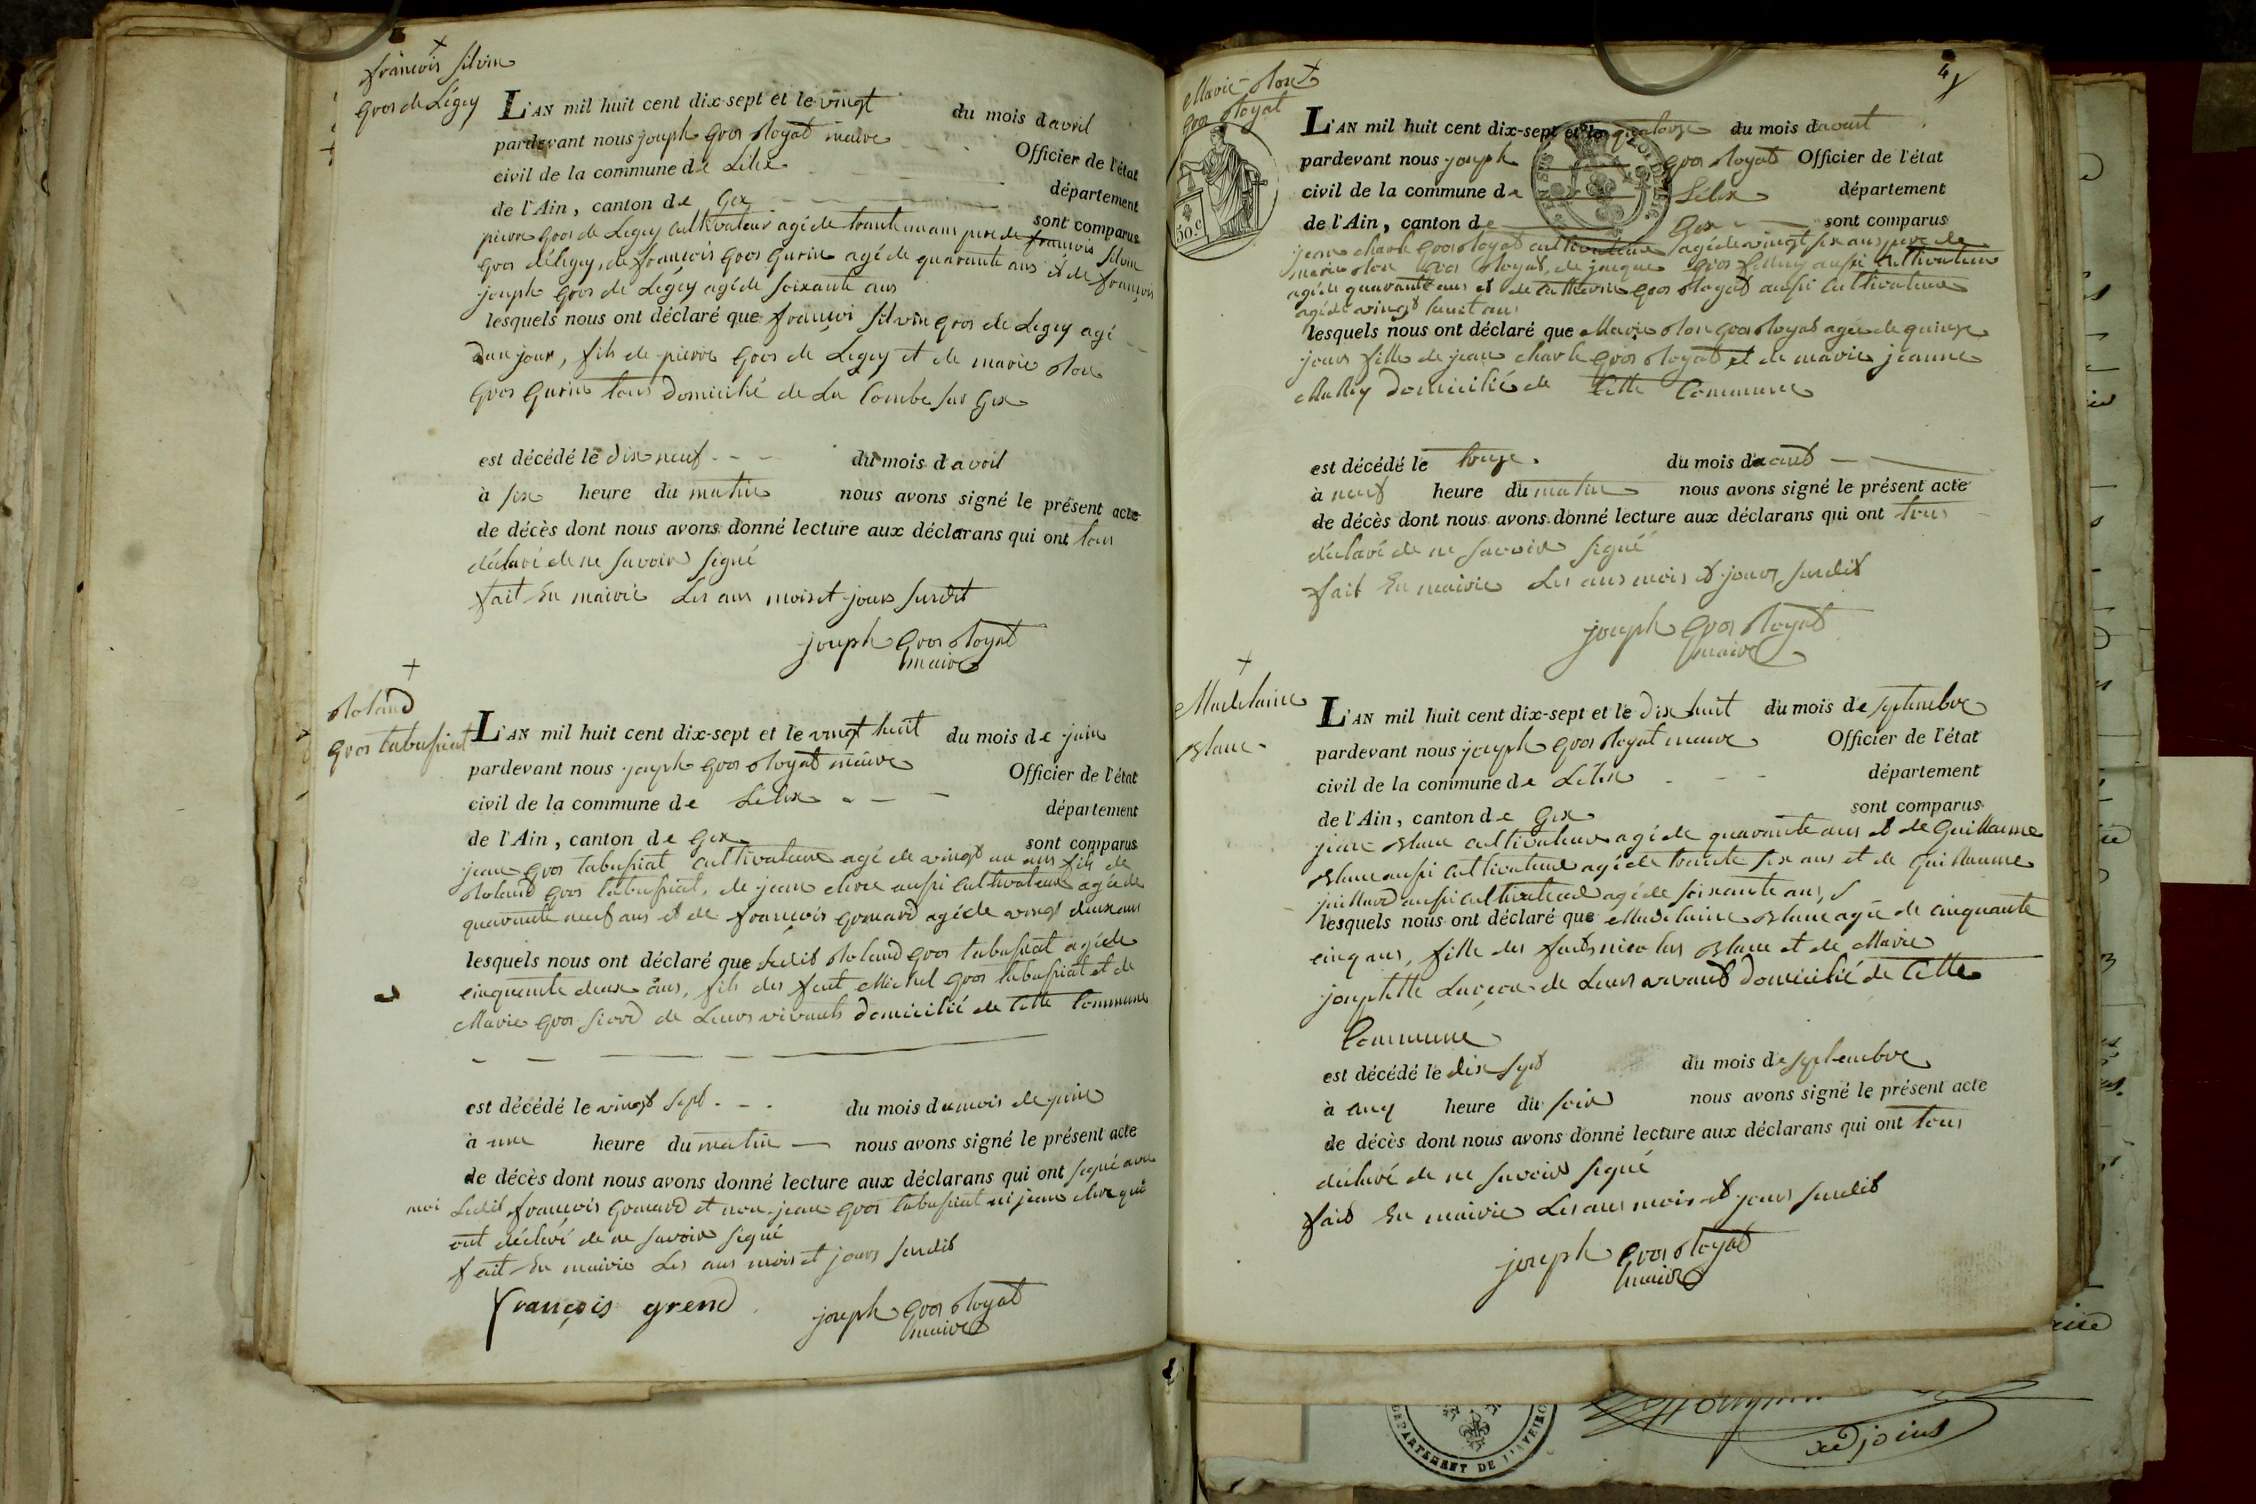 françois silvin
gros de Légey
L'AN mil huit cent dix-sept et le vingt du mois d avril
pardevant nous joseph gros Royat maire Officier de l'état
civil de la commune de Lélex département
de l'Ain, canton de Gex sont comparus
pierre gros de Legey cultivateur agé de trante un ans pere de françois silvin
gros de legey, de françois gros gurin agé de quarante ans et de françois
joseph gros de Légey agé de soixante ans
lesquels nous ont déclaré que françoi silvin gros de Legey agé
dun jour, fils de pierre gros de Legey et de marie Rose
gros gurin tous domicilié de La Combe sur Gex
est décédé le dix neuf du mois d avril
à six heure du matin nous avons signé le présent acte
de décès dont nous avons donné lecture aux déclarans qui ont tous
déclaré de ne savoir signé
fait En mairie Les ans mois et jours susdit
joseph gros Royat
maire
Roland
gros tabussiat
L'AN mil huit cent dix-sept et le vingt huit du mois de juin
pardevant nous joseph gros Royat maire Officier de l'état
civil de la commune de Lélex département
de l'Ain, canton de Gex sont comparus
jean gros tabussiat cultivateur agé de vingt un ans fils de
Roland gros tabussiat, de jean clerc aussi cultivateur agé de
quarante neuf ans et de françois grenard agé de vingt deux ans
lesquels nous ont déclaré que Ledit Roland gros tabussiat agé de
cinquante deux ans, fils des feut Michel gros tabussiat et de
Marie gros de Leurs vivants domicilié de Cette Commune
est décédé le vingt sept du mois du mois de juin
à une heure du matin nous avons signé le présent acte
de décès dont nous avons donné lecture aux déclarans qui ont signé avec
moi Ledit françois grenard et non jean gros tabussiat ni jean clerc qui
ont déclaré de ne savoir signé
fait En mairie Les ans mois et jours susdit
françois grend
joseph gros Royat
maire
4
Marie Rose
gros Royat
50.c
L'AN mil huit cent dix-sept et le quatorze du mois d aout
pardevant nous joseph gros Royat Officier de l'état
civil de la commune de Lélex département
de l'Ain, canton de Gex sont comparus
jean charle gros Royat cultivateur agé de vingt six ans pere de
marie Rose gros Royat, de jacque gros aussi cultivateur
agé de quarante ans et de gros Royat aussi cultivateur
agé de vingt huit ans
lesquels nous ont déclaré que Marie Rose gros Royat agée de quinze
jours fille de jean charle gros Royat et de marie jeanne
domicilié de Cette Commune
est décédé le treize du mois d aout
à neuf heure du matin nous avons signé le présent acte
de décès dont nous avons donné lecture aux déclarans qui ont tous
déclaré de ne savoir signé
fait En mairie Les ans mois et jours susdit
joseph gros Royat
maire
Madelaine
Blanc
L'AN mil huit cent dix-sept et le dix huit du mois de septembre
pardevant nous joseph gros Royat maire Officier de l'état
civil de la commune de Lélex département
de l'Ain, canton de Gex sont comparus
Blanc cultivateur agé de quarante ans et de Guillaume
Blanc aussi cultivateur agé de trante six ans et de Guillaume
aussi cultivateur agé de soixante ans,
lesquels nous ont déclaré que Madelaine Blanc agée de cinquante
cinq ans, fille des nicolas Blanc et de Marie
josephtte de Leurs vivants domicilié de Cette
Commune
est décédé le dix sept du mois de septembre
à cinq heure du soir nous avons signé le présent acte
de décès dont nous avons donné lecture aux déclarans qui ont tous
déclaré de ne savoir signé
fait En mairie Les ans mois et jours susdit
joseph gros Royat
maire
DEPARTEMENT DE L'AVEIRON
adjoint